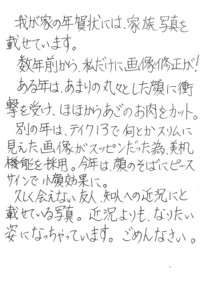 我が家の年賀状には、家族写真を
載せています。
数年前から、私だけに、画像修正が!
ある年は、あまりの丸々とした顔に衝
撃を受け、ほほからあごのお肉をカット。
別の年は、テイク13で何とかスリムに
見えた画像がスッピンだった為、美肌
機能を採用。今年は、顔のそばにピース
サインで小顔効果に。
久しく会えない友人、知人への近況にと
載せている写真。近況よりも、なりたい
姿になっちゃっています。ごめんなさい。